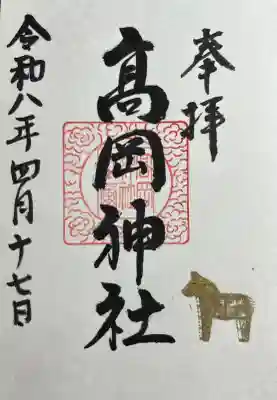 奉拝
髙岡神社
令和八年四月十七日